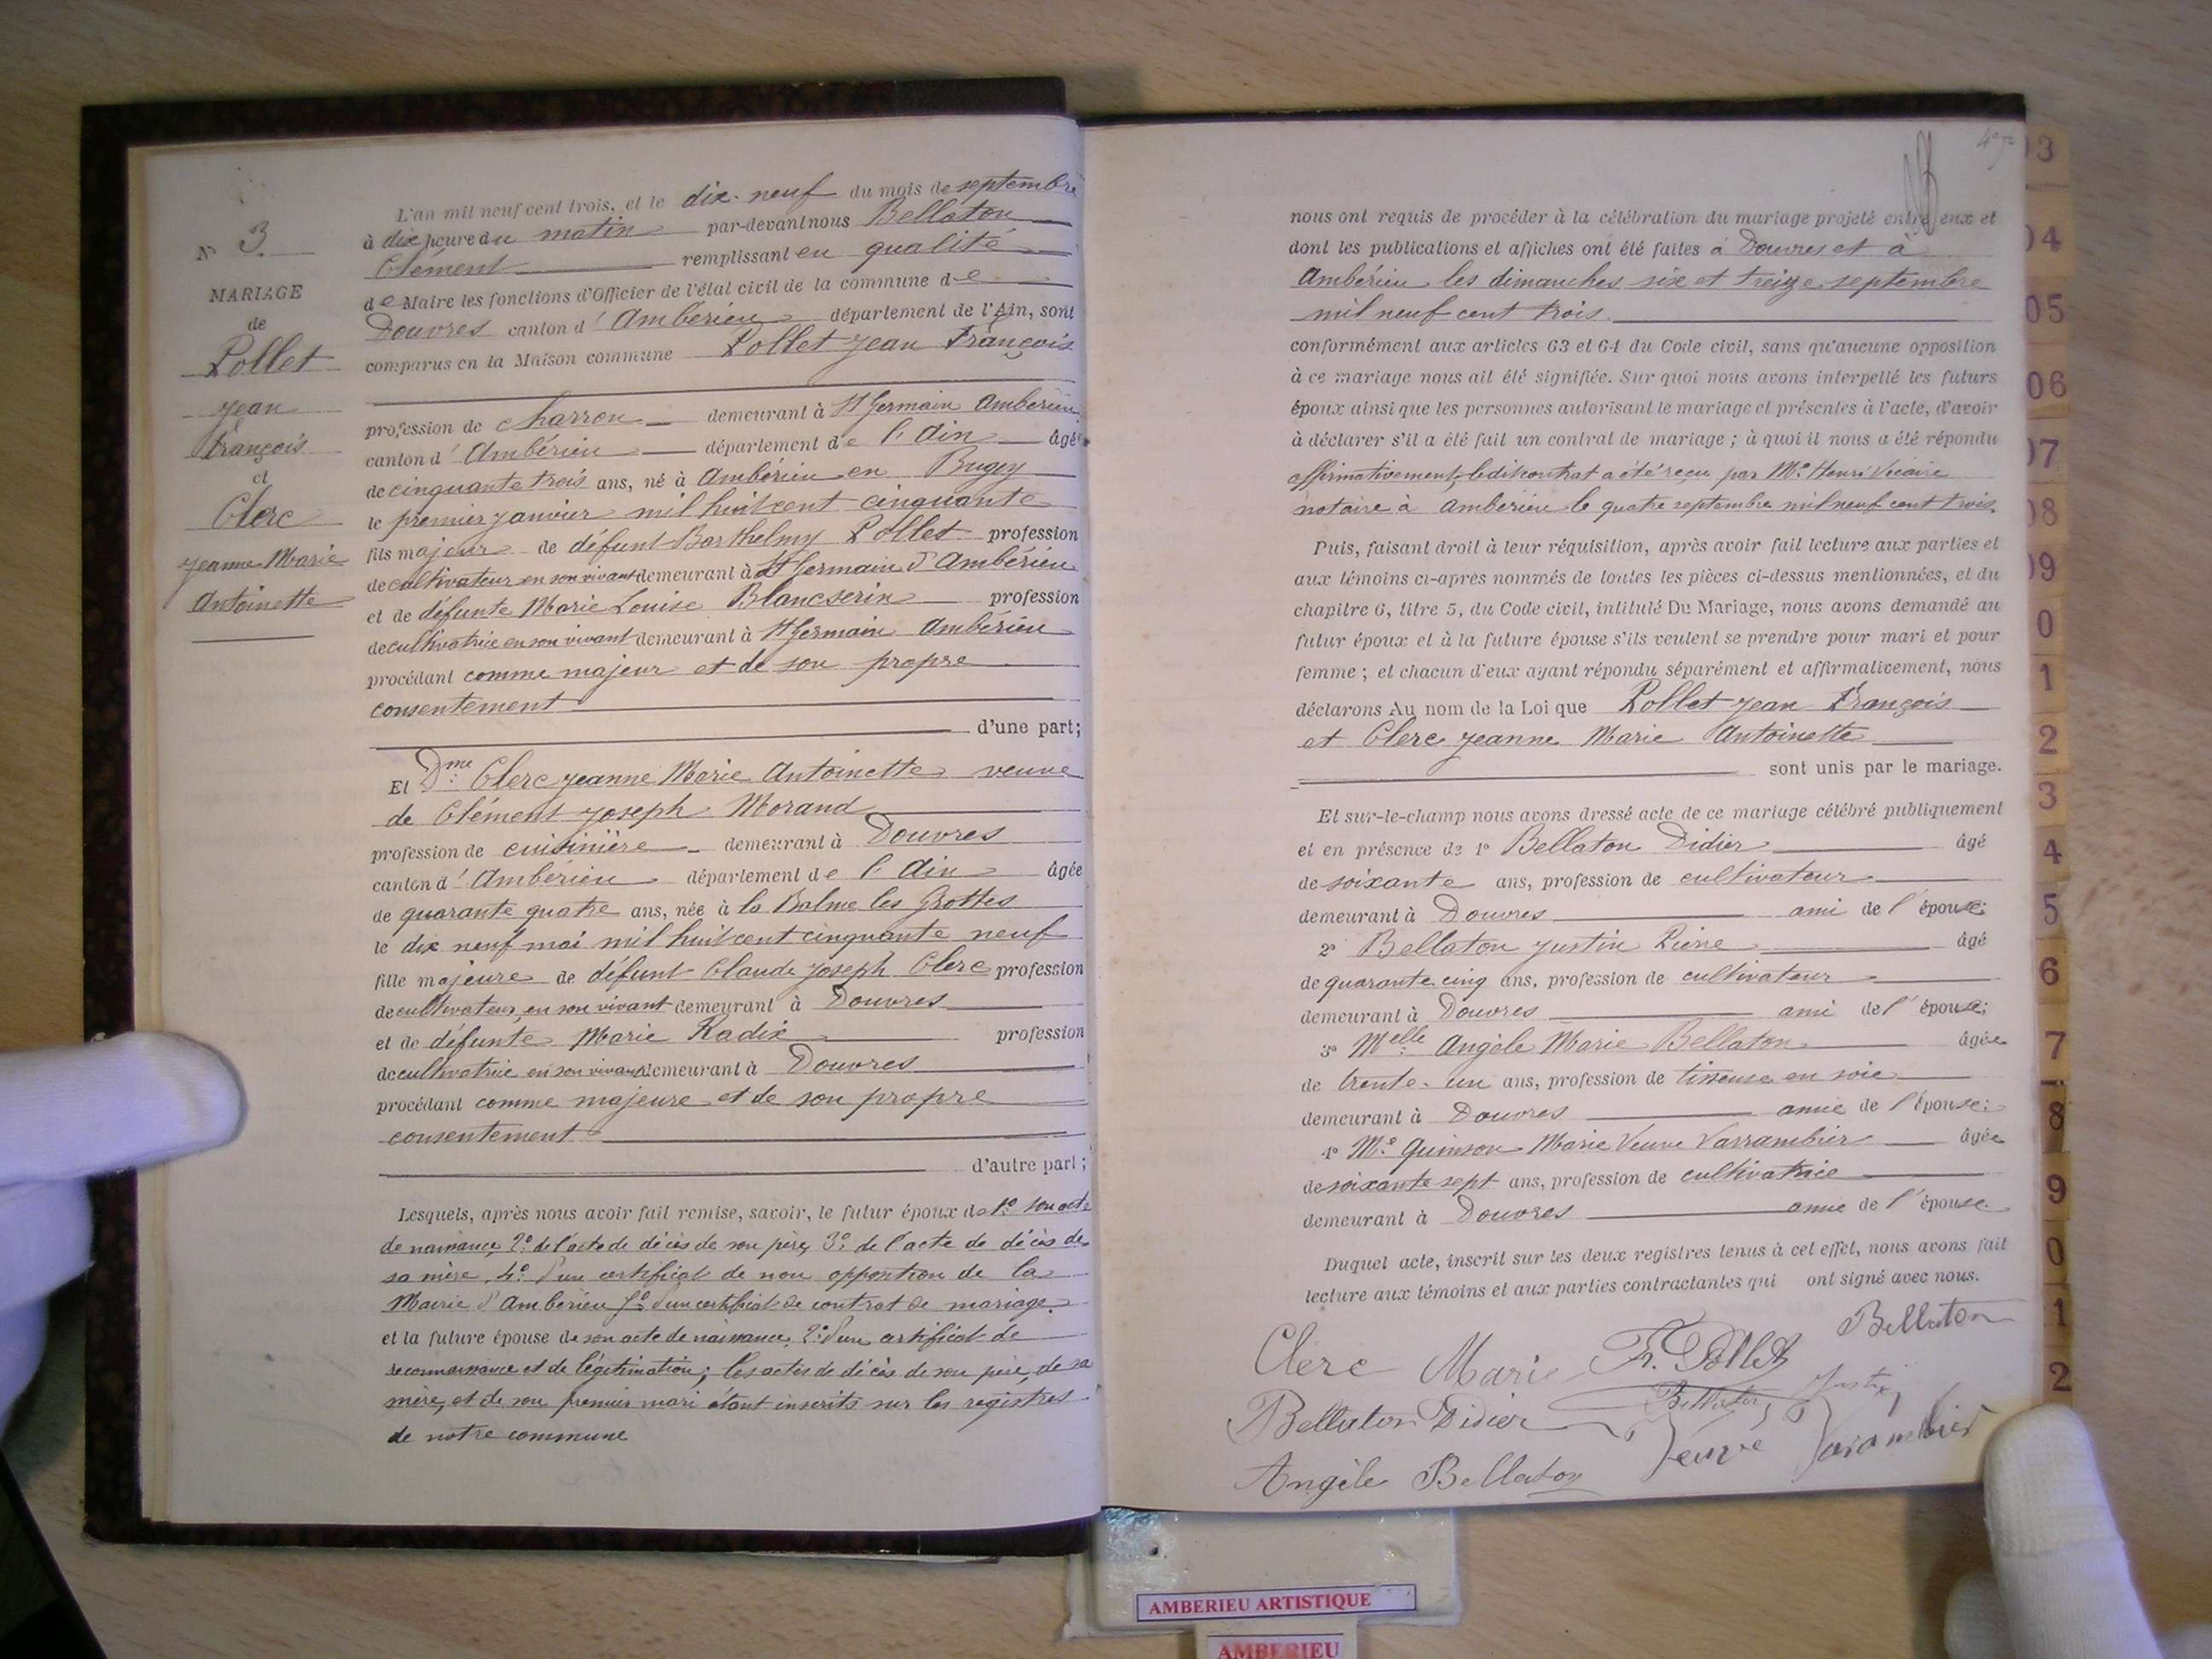 N° 3.
MARIAGE
de
Pollet
Jean
François
et
Clerc
Jeanne Marie
Antoinette
L'an mil neuf cent trois, et le dix-neuf du mois de septembre
à dix heure du matin par-devant nous Bellaton
Clément remplissant en qualité
de Maire les fonctions d'Officier de l'état civil de la commune de
Douvres canton d'Ambérieu département de l'Ain, sont
comparus en la Maison commune Pollet Jean François
profession de charron demeurant à St Germain Ambérieu
canton d'Ambérieu département de l'Ain âgé
de cinquante trois ans, né à Ambérieu en Bugey
le premier janvier mil huit cent cinquante
fils majeur de défunt Barthelmy Pollet profession
de cultivateur en son vivant demeurant à St Germain d'Ambérieu
et de défunte Marie Louise Blancserin profession
de cultivatrice en son vivant demeurant à St Germain Ambérieu
procédant comme majeur et de son propre
consentement
d'une part;
Et Dme Clerc Jeanne Marie Antoinette veuve
de Clément Joseph Morand
profession de cuisinière demeurant à Douvres
canton d'Ambérieu département de l'Ain âgée
de quarante quatre ans, née à la Balme les Grottes
le dix neuf mai mil huit cent cinquante neuf
fille majeure de défunt Claude Joseph Clerc profession
de cultivateur, en son vivant demeurant à Douvres
et de défunte Marie Radix profession
de cultivatrice en son vivant demeurant à Douvres
procédant comme majeure et de son propre
consentement
d'autre part;
Lesquels, après nous avoir fait remise, savoir, le futur époux de 1° son acte
de naissance, 2° de l'acte de décès de son père, 3° de l'acte de décès de
sa mère, 4° d'un certificat de non opposition de la
Mairie d'Ambérieu 5° d'un certificat de contrat de mariage.
et la future épouse de son acte de naissance, 2° d'un certificat de
reconnaissance et de légitimation; les actes de décès de son père, de sa
mère, et de son premier mari étant inscrits sur les registres
de notre commune
nous ont requis de procéder à la célébration du mariage projeté entre eux et
dont les publications et affiches ont été faites à Douvres et à
Ambérieu les dimanches six et treize septembre
mil neuf cent trois.
conformément aux articles 63 et 64 du Code civil, sans qu'aucune opposition
à ce mariage nous ait été signifiée. Sur quoi nous avons interpellé les futurs
époux ainsi que les personnes autorisant le mariage et présentes à l'acte, d'avoir
à déclarer s'il a été fait un contrat de mariage; à quoi il nous a été répondu
affirmativement, ledit contrat a été reçu par Me Henri Vicaire
notaire à Ambérieu le quatre septembre mil neuf cent trois.
Puis, faisant droit à leur réquisition, après avoir fait lecture aux parties et
aux témoins ci-après nommés de toutes les pièces ci-dessus mentionnées, et du
chapitre 6, titre 5, du Code civil, intitulé Du Mariage, nous avons demandé au
futur époux et à la future épouse s'ils veulent se prendre pour mari et pour
femme; et chacun d'eux ayant répondu séparément et affirmativement, nous
déclarons Au nom de la Loi que Pollet Jean François
et Clerc Jeanne Marie Antoinette
sont unis par le mariage.
Et sur-le-champ nous avons dressé acte de ce mariage célébré publiquement
et en présence de 1° Bellaton Didier âgé
de soixante ans, profession de cultivateur
demeurant à Douvres ami de l'épouse;
2° Bellaton Justin Pierre âgé
de quarante cinq ans, profession de cultivateur
demeurant à Douvres ami de l'épouse;
3° Melle Angèle Marie Bellaton âgée
de trente-un ans, profession de tisseuse en soie
demeurant à Douvres amie de l'épouse;
4° Me Quinson Marie Veuve Varrambier âgée
de soixante sept ans, profession de cultivatrice
demeurant à Douvres amie de l'épouse.
Duquel acte, inscrit sur les deux registres tenus à cet effet, nous avons fait
lecture aux témoins et aux parties contractantes qui ont signé avec nous.
Clerc Marie F. Pollet Bellaton
Bellaton Didier Bellaton Justin
Angèle Bellaton Veuve Varambier
03
04
05
06
07
08
09
0
1
2
3
4
5
6
7
8
9
0
1
2
AMBERIEU ARTISTIQUE
AMBERIEU